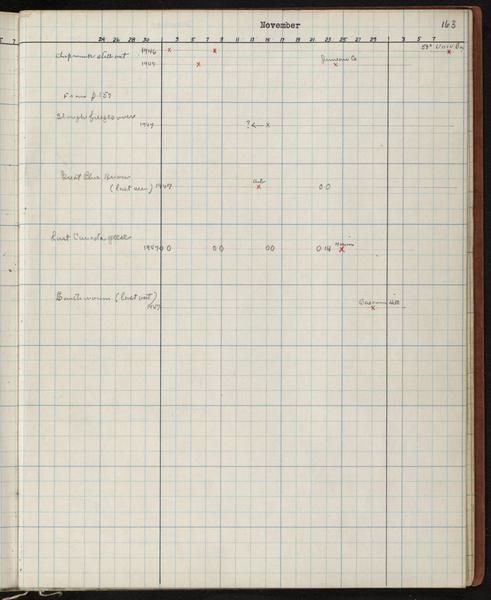 November
163
7
24 26 28 30 1 3 5 7 9 11 13 15 17 19 21 23 25 27 29 3 5 7
Chipmunk still out 1946 x x x
1947 x Juneau Co x
From p 157
Slough freezes over
1947 ? ← x
Great Blue Heron
(last seen) 1947 x 0 0
Last Canada geese
1947 0 0 0 0 0 0 0 14 x
Earthworm (last out)
1947 x